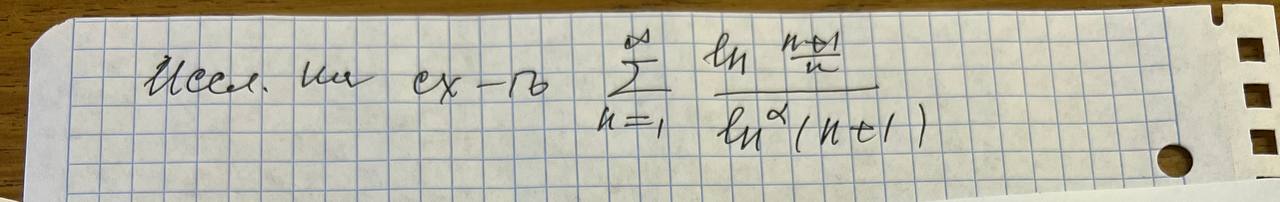 Иссл. на сх-ть $\sum_{n=1}^{\infty} \frac{\ln \frac{n+1}{n}}{\ln^{\alpha}(n+1)}$